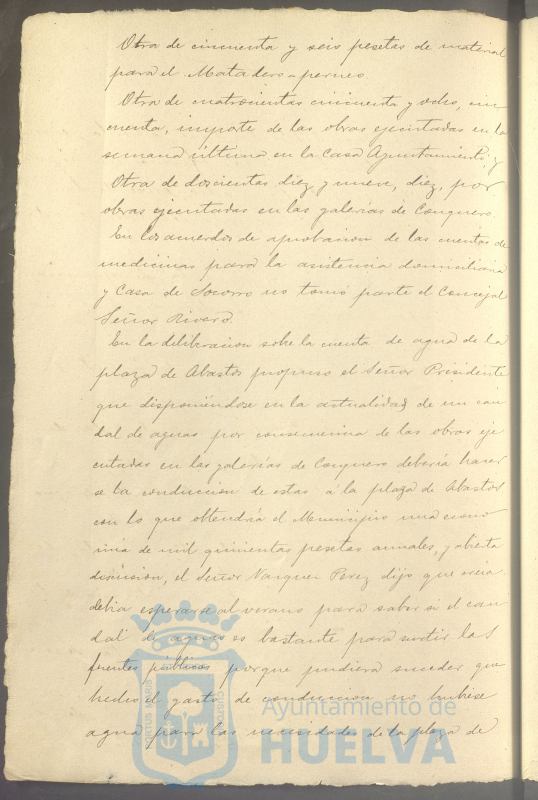 Otra de cincuenta y seis pesetas de material
para el Matadero-perneo.
Otra de cuatrocientas cincuenta y ocho, cin
cuenta, importe de las obras ejecutadas en la
semana última en la Casa Ayuntamiento, y
Otra de doscientas diez y nueve, diez, por
obras ejecutadas en las galerías de Conquero.
En los acuerdos de aprobacion de las cuentas de
medicinas para la asistencia domiciliaria
y Casa de Socorro no tomó parte el Concejal
Señor Rivero.
En la deliberacion sobre la cuenta de agua de la
plaza de Abastos propuso el Señor Presidente
que disponiéndose en la actualidad de un cau
dal de aguas por consecuencia de las obras eje
cutadas en las galerías de Conquero debería hacer
se la conduccion de estas á la plaza de Abastos
con lo que obtendría el Municipio una econo
mía de mil quinientas pesetas anuales, y abierta
discusion, el Señor Vazquez Perez dijo que creia
debia esperarse al verano para saber si el cau
dal de aguas es bastante para surtir las
fuentes públicas porque pudiera suceder que
hecho el gasto de conduccion no hubiese
agua para las necesidades de la plaza de
Ayuntamiento de
HUELVA
PORTUS MARIS
CUSTODIA